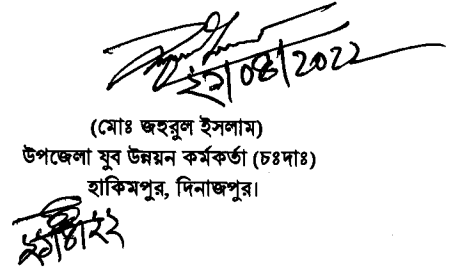 ২১/০৪/2022
(মোঃ জহুরুল ইসলাম)
উপজেলা যুব উন্নয়ন কর্মকর্তা (চঃদাঃ)
হাকিমপুর, দিনাজপুর।
২১/৪/২২